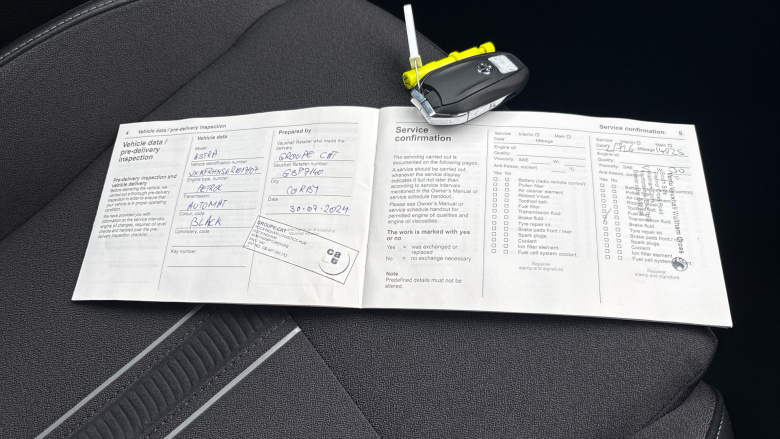 4 Vehicle data / pre-delivery inspection
Vehicle data /
pre-delivery
inspection
Pre-delivery inspection and
vehicle delivery
Before delivering the vehicle, we
carried out a thorough pre-delivery
inspection in order to ensure that
your vehicle is in proper operating
condition.
We have provided you with
information on the service intervals,
engine oil changes, required oil level
checks and handed over the pre-
delivery inspection checklist.
Vehicle data
Model
ASTRA
Vehicle identification number
Engine type, number
PETROL
Transmission
AUTOMAT
Colour, code
BLACK
Upholstery, code
Key number
Prepared by
Vauxhall Retailer who made the
delivery
GROUPE CAT
Vauxhall Retailer number
City
CORBY
Date
30-07-2024
GROUPE CAT
cat
Service
confirmation
The servicing carried out is
documented on the following pages.
A service should be carried out
whenever the service display
indicates it but not later than
according to service intervals
mentioned in the Owner's Manual or
service schedule handout.
Please see Owner's Manual or
service schedule handout for
permitted engine oil qualities and
engine oil viscosities.
The work is marked with yes
or no
Yes = was exchanged or
replaced
No = no exchange necessary
Note
Predefined details must not be
altered.
Service: Interim Main
Date: Mileage:
Engine oil
Quality:
Viscosity: SAE W-
Anti-freeze, coolant °C
Yes No
Battery (radio remote control)
Pollen filter
Air cleaner element
Ribbed V-belt
Toothed belt
Fuel filter
Transmission fluid
Brake fluid
Tyre repair kit
Brake pads front / rear
Spark plugs
Coolant
Ion filter element
Fuel cell system coolant
Repairer
stamp and signature
Service confirmation 5
Service: Interim Main
Date: Mileage: 14025
Engine oil
Quality:
Viscosity: SAE
Anti-freeze, coolant
Yes No
Transmission fluid
Brake fluid
Tyre repair kit
Brake pads front
Spark plugs
Coolant
Ion filter element
Fuel cell system
Repairer
stamp and signature
Vauxhall Waltham Cross